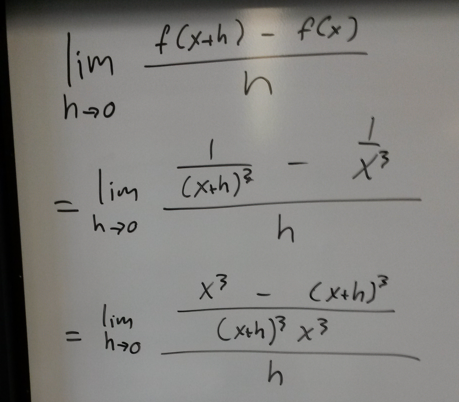 lim h→0 (f(x+h) - f(x)) / h
= lim h→0 (1/(x+h)³ - 1/x³) / h
= lim h→0 ((x³ - (x+h)³) / ((x+h)³ x³)) / h